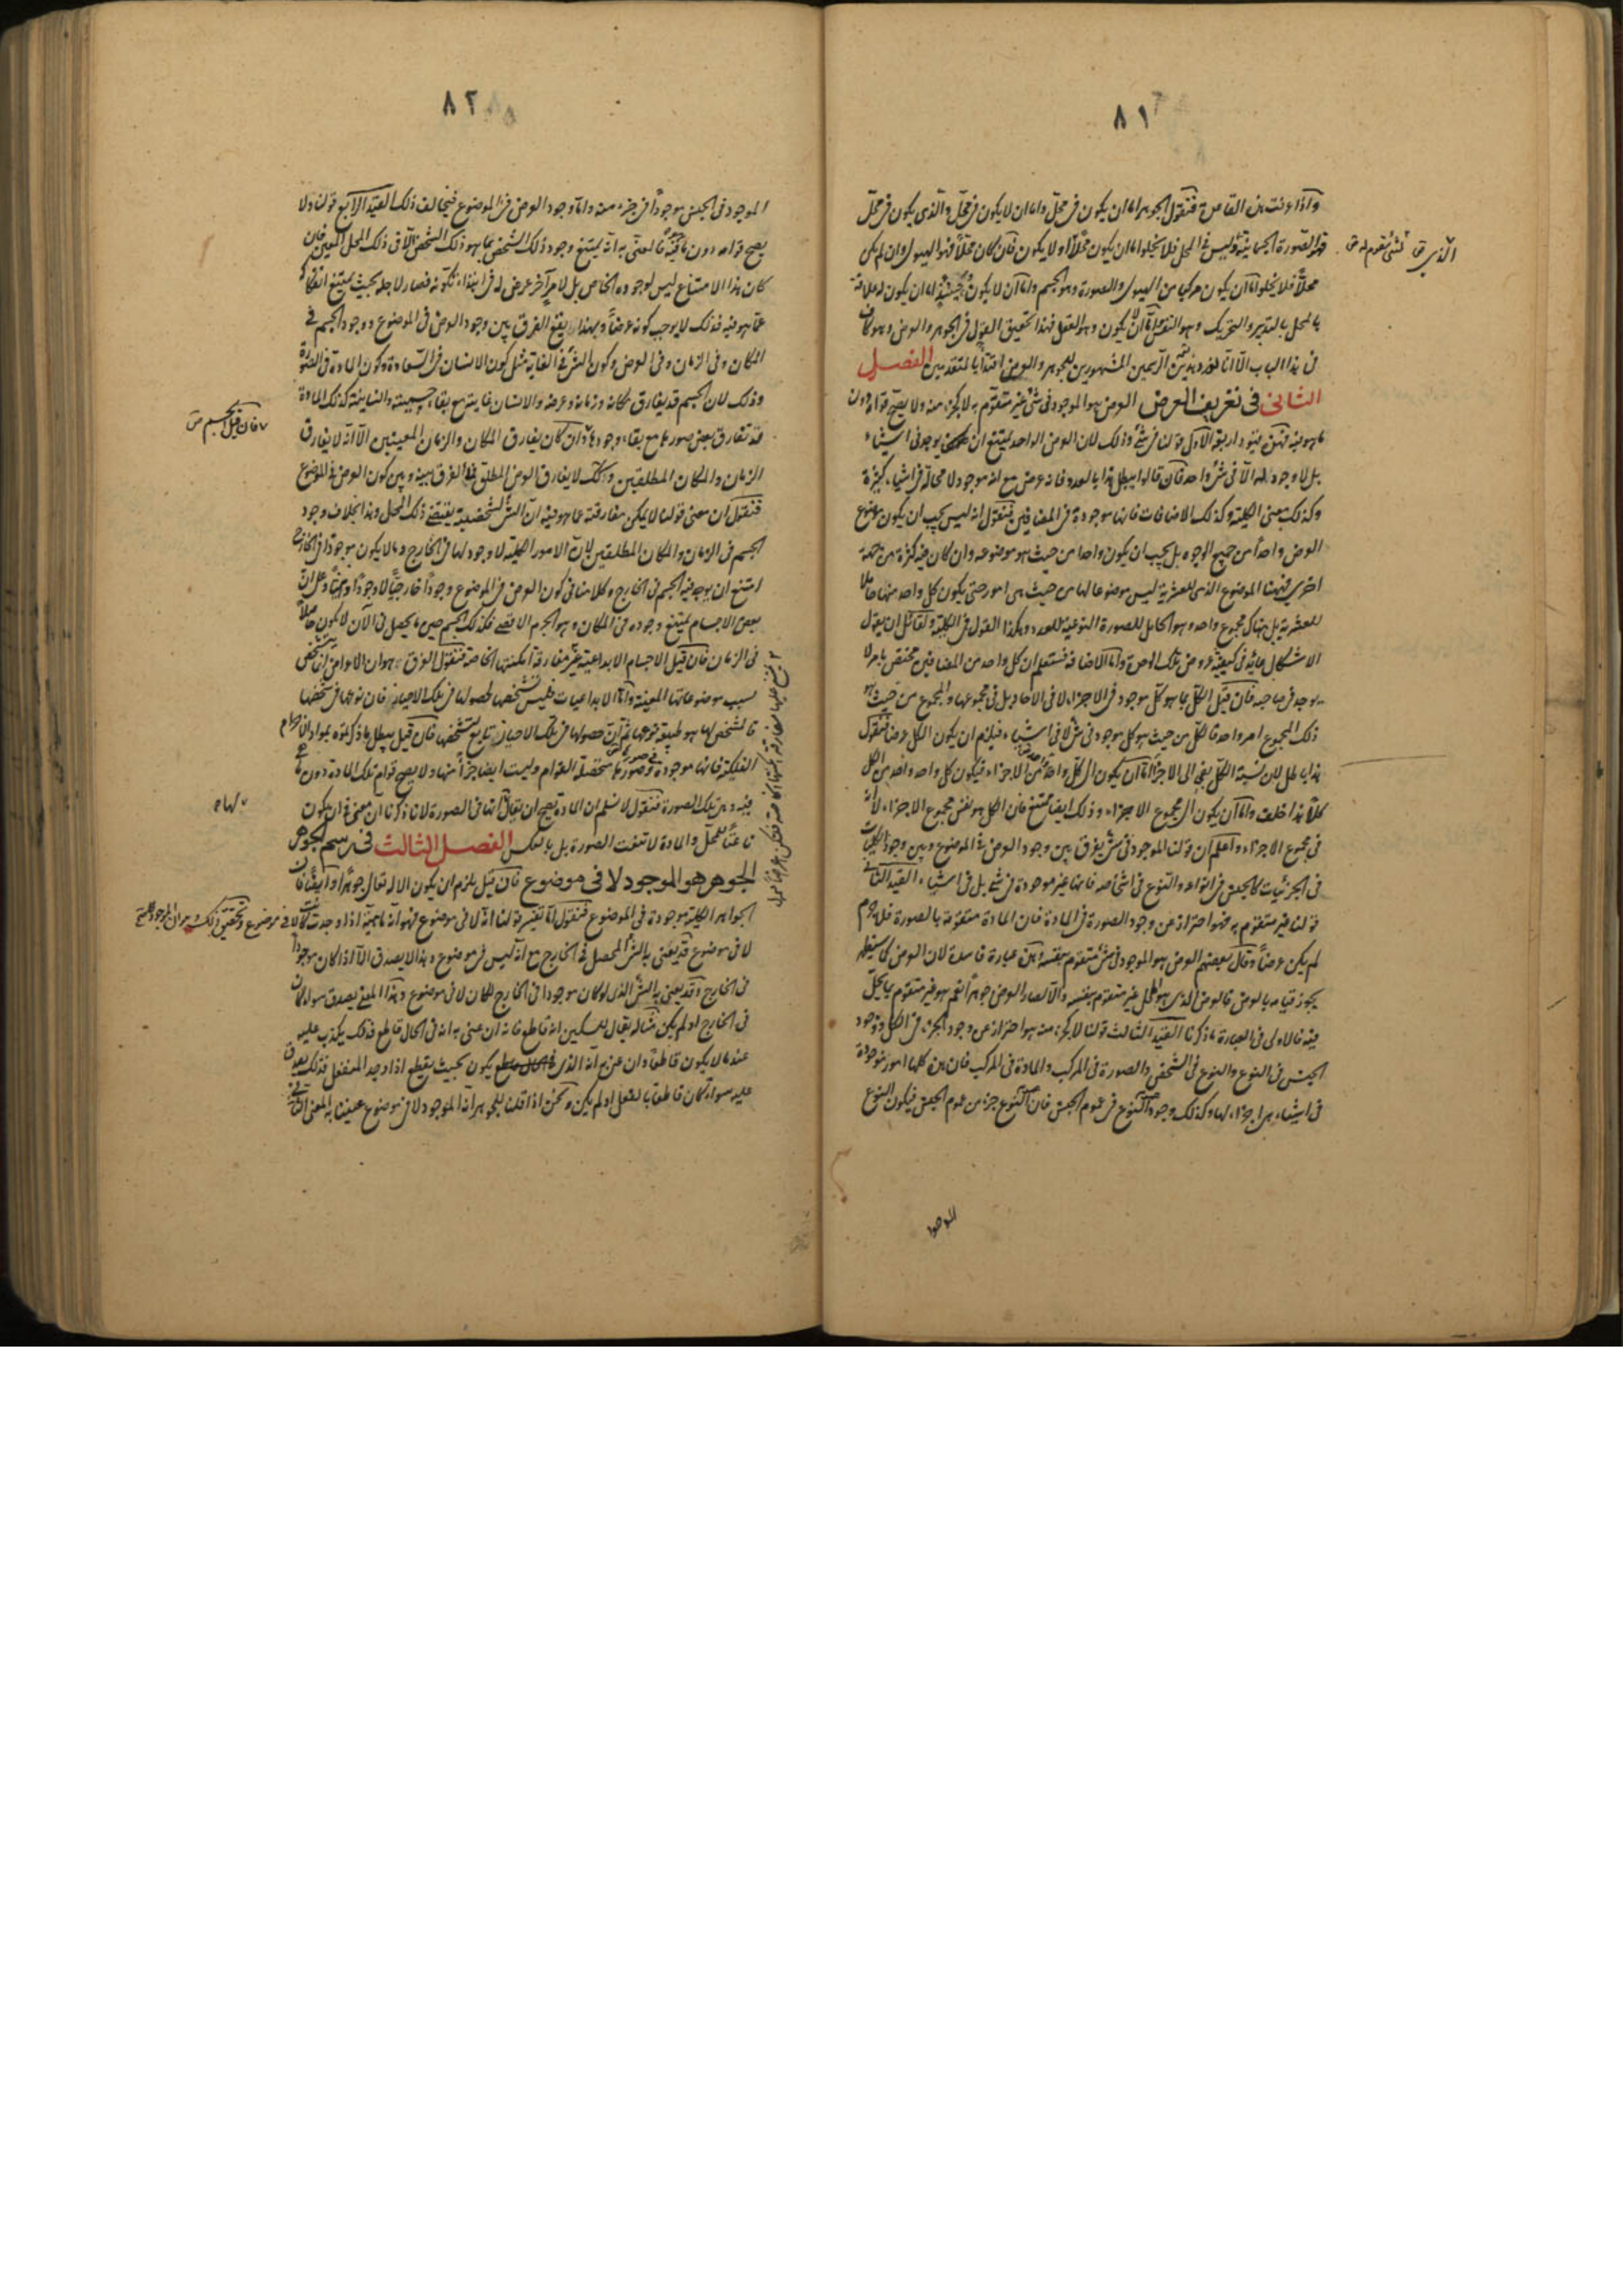 ٨١
واذا عرفت هذه القاعدة فنقول الجوهر اما ان يكون فى محل واما ان لا يكون فى محل والذى يكون فى محل
فهو الصورة الجسمانية وليس فى المحل فلا يخلو اما ان يكون محلا او لا يكون فان كان محلا فهو الهيولى وان لم يكن
محلا فلا يخلو اما ان يكون مركبا من الهيولى والصورة وهو الجسم واما ان لا يكون فحينئذ اما ان يكون له علاقة
بالمحل بالتدبير والتحريك وهو النفس واما ان لا يكون وهو العقل فهذا تحقيق القول فى الجوهر والعرض وهو كاف
فى هذا الباب الا انا نورد هذين الرسمين المشهورين للجوهر والعرض اقتداء بالمتقدمين الفصل
الثانى فى تعريف العرض العرض هو الموجود فى شئ غير متقوم به لا كجزء منه ولا يصح قوامه دون
ما هو فيه فهذه قيود اربعة الاول قولنا فى شئ وذلك لان العرض الواحد يمتنع ان يوجد فى اشياء
بل لا وجود له الا فى شئ واحد فان قالوا يبطل هذا بالعدد فانه عرض مع انه موجود لا محالة فى اشياء كثيرة
وكذلك معنى الكلية وكذلك الاضافات فانها موجودة فى المضافين فنقول انه ليس يجب ان يكون موضوع
العرض واحدا من جميع الوجوه بل يجب ان يكون واحدا من حيث هو موضوعه وان كان فيه كثرة من جهة
اخرى فههنا الموضوع الذى للعشرية ليس موضوعا لها من حيث هى امور حتى يكون كل واحد منها حاملا
للعشرية بل هناك مجموع واحد وهو الحامل للصورة النوعية للعدد وهكذا القول فى الكلية ولقائل ان يقول
الاشكال عائد فى كيفية عروض تلك الوحدة واما الاضافة فستعلم ان كل واحد من المضافين مختص بامر لا
يوجد فى صاحبه فان قيل الكل بما هو كل موجود فى الاجزاء لا فى الآحاد بل فى مجموعها والمجموع من حيث هو
ذلك المجموع امر واحد فالكل من حيث هو كل موجود فى شئ لا فى اشياء فيلزم ان يكون الكل عرضا فنقول
هذا باطل لان نسبة الكل الى الاجزاء اما ان يكون الى كل واحد من الاجزاء فيكون كل واحد واحد من الكل
كلا هذا خلف واما ان يكون الى مجموع الاجزاء وذلك ايضا ممتنع فان الكل هو نفس مجموع الاجزاء لا انه
فى مجموع الاجزاء واعلم ان قولنا الموجود فى شئ يفرق بين وجود العرض فى الموضوع وبين وجود الكليات
فى الجزئيات كالجنس فى انواعه والنوع فى اشخاصه فانها غير موجودة فى شئ بل فى اشياء القيد الثانى
قولنا غير متقوم به فهو احتراز عن وجود الصورة فى المادة فان المادة متقومة بالصورة فلا جرم
لم يكن عرضا وقال بعضهم العرض هو الموجود فى شئ متقوم بنفسه وهذه عبارة فاسدة لان العرض كما سيظهر
يجوز قيامه بالعرض فالعرض الذى هو المحل غير متقوم بنفسه والا لصار العرض جوهرا نعم هو غير متقوم بما يحل
فيه فالاولى فى العبارة ما ذكرنا القيد الثالث قولنا لا كجزء منه هو احتراز عن وجود الجزء فى الكل ووجود
الجنس فى النوع والنوع فى الشخص والصورة فى المركب والمادة فى المركب فان هذه كلها امور موجودة
فى اشياء هى اجزاء لها وكذلك وجود النوع فى عموم الجنس فان النوع جزء من عموم الجنس فيكون النوع
الموجود
٨٢
الموجود فى الجنس موجودا فى جزء منه واما وجود العرض فى الموضوع فيخالف ذلك القيد الرابع قولنا ولا
يصح قوامه دون ما فيه فالمعنى به انه يمتنع وجود ذلك الشخص بما هو ذلك الشخص الا فى ذلك المحل المعين فان
كان هذا الامتناع ليس لوجوده الخاص بل لامر آخر عرض له
عما هو فيه فذلك لا يوجب كونه عرضا وبهذا يقع الفرق بين وجود العرض فى الموضوع ووجود الجسم فى
المكان وفى الزمان وفى العرض وكون الشئ فى الغاية مثل كون الانسان فى السعادة وكون المادة فى الصورة
وذلك لان الجسم قد يفارق مكانه وزمانه وعرضه والانسان غايته مع بقاء جسميته وانسانيته كذلك المادة
قد تفارق بعض صورها مع بقاء وجودها وان كان يفارق المكان والزمان المعينين الا انه لا يفارق
الزمان والمكان المطلقين وكذلك لا يفارق العرض المطلق فما الفرق بينه وبين كون العرض فى الموضوع
فنقول ان معنى قولنا لا يمكن مفارقته عما هو فيه ان الشئ لشخصيته يقتضى ذلك المحل وهذا بخلاف وجود
الجسم فى الزمان والمكان المطلقين لان الامور الكلية لا وجود لها فى الخارج وما لا يكون موجودا فى الخارج
امتنع ان يوجد فيه الجسم فى الخارج وكلامنا فى كون العرض فى الموضوع وجودا خارجيا لا وجودا وهميا وعلى ان
بعض الاجسام يمتنع وجوده فى المكان وهو الجرم الاقصى فكذلك الجسم حين ما يحصل فى الآن لا يكون حاصلا
فى الزمان فان قيل الاجسام الابداعية غير مفارقة امكنتها الخاصة فنقول الفرق هو ان الاعراض تتشخص
بسبب موضوعاتها المعينة واما الابداعيات فليس تشخصها لحصولها فى تلك الاحياز فان نوعها فى شخصها
فالمشخص لها هو طبيعة نوعها ثم ان حصولها فى تلك الاحياز تابع لتشخصها فان قيل يبطل ما ذكرتموه بمواد الاجرام
الفلكية فانها موجودة فى صورها محصلة القوام وليست ايضا جزءا منها ولا يصح قوام تلك المادة دون ما هى
فيه وهى تلك الصورة فنقول لا نسلم ان المادة يصح ان يقال انها فى الصورة لانا ذكرنا ان معنى فى ان يكون
ناعتا للمحل والمادة لا تنعت الصورة بل بالعكس الفصل الثالث فى رسم الجوهر
الجوهر هو الموجود لا فى موضوع فان قيل يلزم ان يكون الاله تعالى جوهرا وايضا فان
الجواهر الكلية موجودة فى الموضوع فنقول اما تفسير قولنا انه لا فى موضوع فهو انه ماهية اذا وجدت كانت لا فى موضوع وتحقيق ذلك هو ان الموجود
لا فى موضوع قد يعنى به الشئ المحصل فى الخارج مع انه ليس فى موضوع وهذا لا يصدق الا اذا كان موجودا
فى الخارج وقد يعنى به الشئ الذى لو كان موجودا فى الخارج لكان لا فى موضوع وهذا المعنى يصدق سواء كان
فى الخارج او لم يكن مثاله يقال للسكين انه قاطع فانه ان عنى به انه فى الحال قاطع فذلك يكذب عليه
عند ما لا يكون قاطعا وان عنى به انه الذى يكون بحيث يقطع اذا وجد المنفعل فذلك يصدق
عليه سواء كان قاطعا بالفعل او لم يكن ونحن اذا قلنا للجوهر انه الموجود لا فى موضوع عنينا به المعنى الثانى
فان قيل الجسم
لها